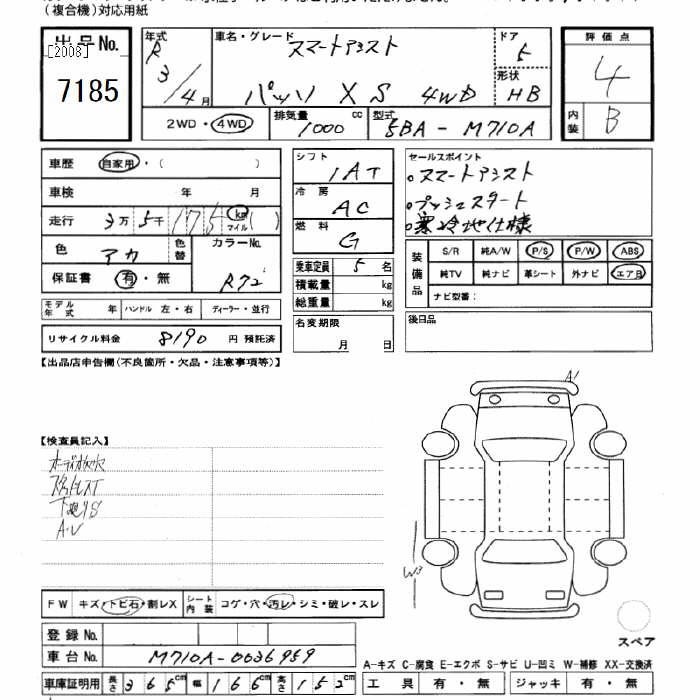 (複合機)対応用紙
出品No. [2008] 7185
年式 R 3/4月
車名・グレード スマートアシスト パッソ XS 4WD
ドア 5
形状 HB
2WD・4WD
排気量 1000 cc
型式 5BA-M710A
評価点 4
内装 B
車歴 自家用・( )
車検 年 月
走行 3万5千175 km マイル ( )
色 アカ 色替 カラーNo. R72
保証書 有・無
モデル年式 年 ハンドル 左・右 ディーラー・並行
リサイクル料金 8190 円 預託済
シフト 1AT
冷房 AC
燃料 G
乗車定員 5 名
積載量 kg
総重量 kg
名変期限 月 日
セールスポイント
。スマートアシスト
。プッシュスタート
。寒冷地仕様
装備品 S/R 純A/W P/S P/W ABS
純TV 純ナビ 革シート 外ナビ エアB
ナビ型番:
後日品
【出品店申告欄(不良箇所・欠品・注意事項等)】
【検査員記入】
下廻りS
A・U
A1
W3
FW キズ・トビ石・割レX シート内装 コゲ・穴・汚レ・シミ・破レ・スレ
登録No.
車台No. M710A-0036959
車庫証明用 長さ 365cm 幅 166cm 高さ 152cm
スペア
A-キズ C-腐食 E-エクボ S-サビ U-凹ミ W-補修 XX-交換済
工具 有・無 ジャッキ 有・無